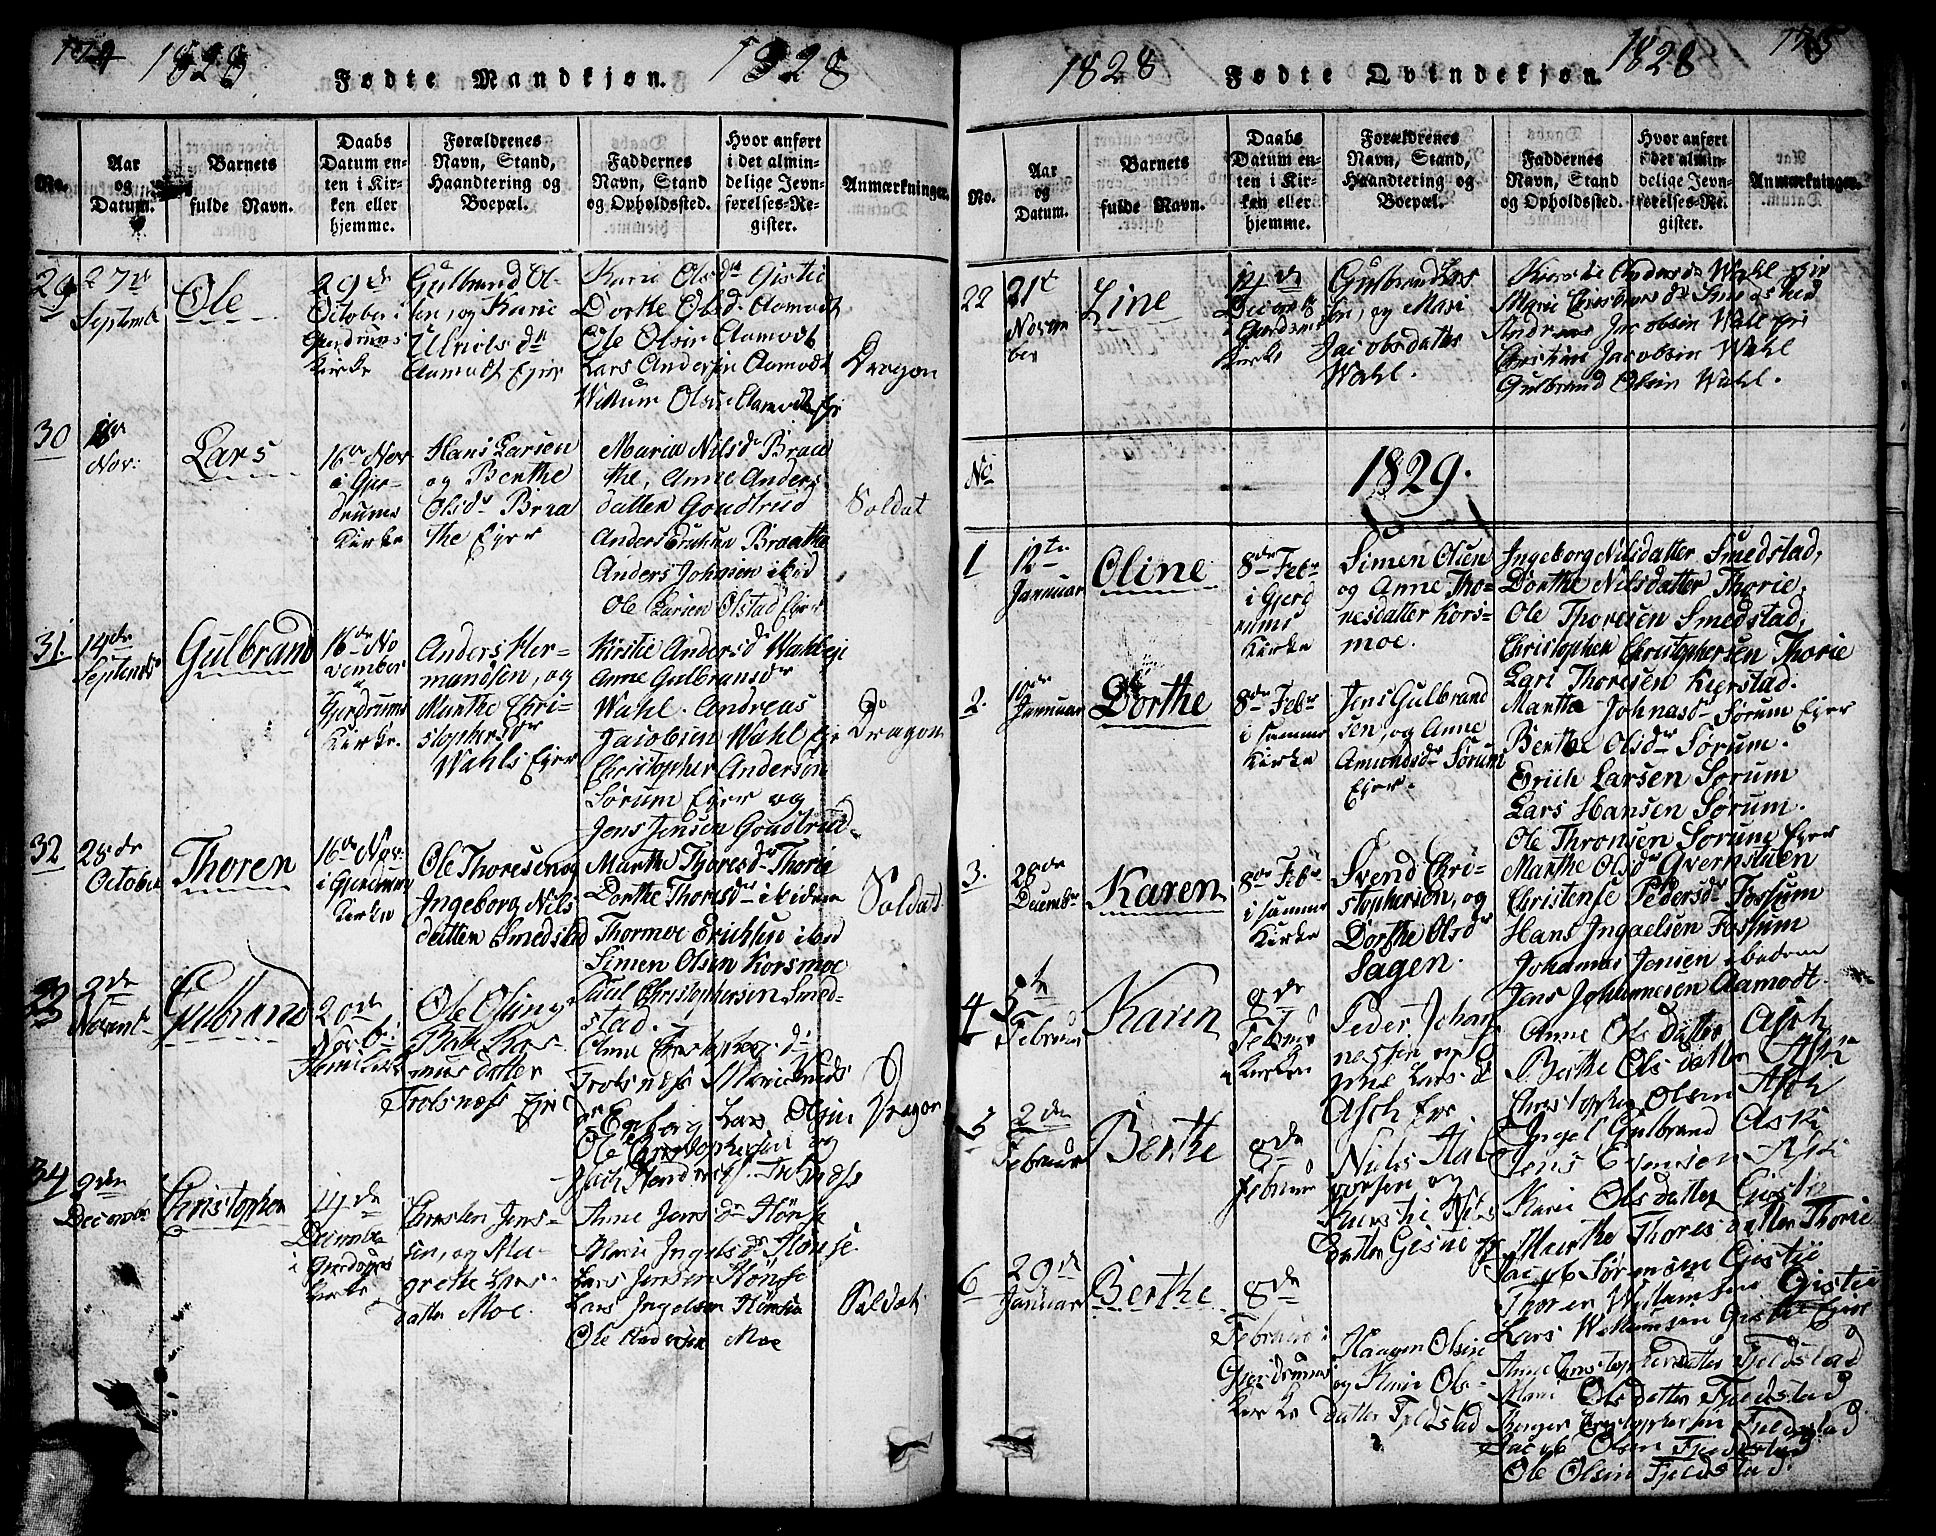 174
1828
Fødte Mandkjøn.
1828
No.
Aar
og
Datum.
Barnets
fulde Navn.
Daabs
Datum en-
ten i Kir-
ken eller
hjemme.
Forældrenes
Navn, Stand,
Haandtering og
Boepæl.
Faddernes
Navn, Stand
og Opholdssted.
Hvor anført
i det almin-
delige Jevn-
førelses-Re-
gister.
Anmærkninger.
29
27de
Septemb
Ole
29de
October i
Gjerdrums
Kirke
Gulbrand Ol-
sen, og Karie
Aamodt Ejer
Karie Olsdr Gistie
Dorthe Olsdr Aamodt
Ole Olsen Aamodt
Lars Andersen Aamodt
Willum Olsen Aamodt Ej
Dragon
30
Nov:
Lars
16de Nov
i Gjer-
drums
Kirke
Hans Larsen
og Berthe
Olsdr Braa
the Ejer
Maria Nilsdr Braa
the, Anne Anders
datter Goudtrud
Anders Erichsen Braathe
Anders Johnsen ibid
Ole Larsen Olstad Ejer
Soldat
31.
14de
Septemb
Gulbrand
16de No
vember
Gjerdrums
Kirke.
Anders Her-
mandsen, og
Marthe Chri-
stophersdr
Wahls Ejer
Kirstie Andersdr Wahl eje
Anne Gulbransdr
Wahl. Andreas
Jacobsen Wahl eje
Christopher Anderson
Sørum Ejer og
Jens Jensen Goudtrud
Dragon
32
28de
October
Thoren
16de Nov:
i Gjerdrums
Kirke
Ole Thoresen og
Ingeborg Nils
datter Smedstad
Marthe Thoresdr Thorie
Dorthe Thorsdr ibidem
Thormoe Erichsen ibid
Simen Olsen Korsmoe
Paul Christophersen Smed-
stad.
Soldat
33
2de
Novemb
Gulbrand
20de
Ole Olsen og
mus datter
Trolsnæss Eje
Lars Olsen
Ole Christophersen og
Dragon
34
2den
December
Christopher
14de
Decembr
i Gjerdrums
Kirke
Christen Jens-
sen, og Ma-
grethe Lars-
datter Moe.
Anne Jensdr Hønse
Marie Ingelsdr Hønse.
Lars Jensen Hønse
Lars Ingelsen Hønsie
Ole Andersen Moe
Soldat
1828
Fødte Qvindekjøn.
1828
175
No.
Aar
og
Datum.
Barnets
fulde Navn.
Daabs
Datum en-
ten i Kir-
ken eller
hjemme.
Forældrenes
Navn, Stand,
Haandtering og
Boepæl.
Faddernes
Navn, Stand
og Opholdssted.
Hvor anført
i det almin-
delige Jevn-
førelses-Re-
gister.
Anmærkninger.
22
21de
Novem
ber
Line
14de
Decembr
i Gjerdrums
Kirke
Gulbrand Lar
sen, og Mari
Jacobsdatter
Wahl.
Kierstie Andersdr Wahl ejer
Andreas Jacobsen Wahl Ejer
Christian Jacobsen Wahl
Gulbrand Olsen Wahl.
No
1829.
1
12te
Januar
Oline
8de Febr
i Gjerd
rums
Kirke
Simen Olsen
og Anne Tho-
resdatter Kors-
moe.
Ingeborg Nilsdatter Smedstad,
Dorthe Nilsdatter Thorie,
Ole Thoresen Smedstad,
Christopher Christophersen Thorie
Lars Thoresen Kierstad.
2.
Januar
Dorthe
8de Febr
i samme
Kirke
Jens Gulbrand
sen, og Anne
Amundsdr Sørum
Ejer.
Marthe Johnasdr Sørum Ejer
Berthe Olsdr Sørum.
Erich Larsen Sørum
Lars Hansen Sørum.
Ole Thronsen Sørum Ejer
3.
28de
Decembr
Karen
8de Febr
i samme
Kirke
Svend Chri-
stophersen, og
Dorthe Olsdr
Sagen.
Marthe Olsdr Qvernstuen
Christense Pedersdr Fossum
Hans Ingaelsen Fossum
Johannes Jensen ibedem
Jens Johannesen Aamodt.
4
Februar
Karen
8de
Februar
Kirken
Peder Johan
nessen og So
phie Larsdr
Asch Ejer
Anne Olsdatter Asch
Berthe Olsdatter Aschr
Christopher Olsen Asch
Ingel Gulbrand Ask
Jens Evensen Ask
5
2den
Februar
Berthe
8de
Februar
Niels Hal
vorsen og
Kierstie Niels
datter Gisne Ejer
Karie Olsdatter Gistie
Marthe Thoresdatter Thorie
Jacob Sørensen Gistie
Thoren Willumsen Gistie
Lars Willumsen Gistie Ejer
6
29de
Januar
Berthe
8de
Februar i
Gjerdrums
Kirke
Haagen Olsen
og Karie Ols-
datter Fjeldstad
Anne Christophersdatter Fjeldstad
Mari Olsdatter Fjeldstad
Torger Christophersen Fjeldstad
Jacob Olsen Fjeldstad
Ole Olsen Fjeldstad.